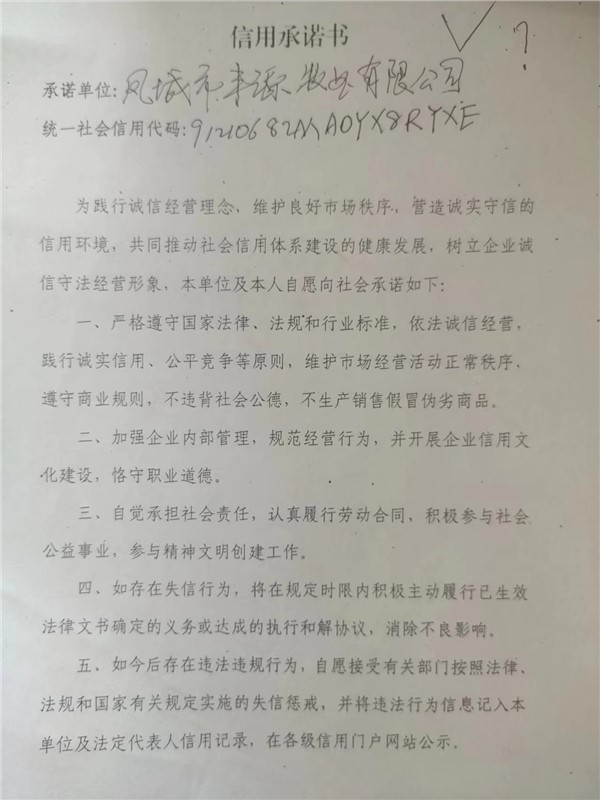 信用承诺书
?
承诺单位:凤城市来源牧业有限公司
统一社会信用代码:91210682MA0YX8RYXE
为践行诚信经营理念，维护良好市场秩序，营造诚实守信的
信用环境，共同推动社会信用体系建设的健康发展，树立企业诚
信守法经营形象，本单位及本人自愿向社会承诺如下:
一、严格遵守国家法律、法规和行业标准，依法诚信经营，
践行诚实信用、公平竞争等原则，维护市场经营活动正常秩序，
遵守商业规则，不违背社会公德，不生产销售假冒伪劣商品。
二、加强企业内部管理，规范经营行为，并开展企业信用文
化建设，恪守职业道德。
三、自觉承担社会责任，认真履行劳动合同，积极参与社会
公益事业，参与精神文明创建工作。
四、如存在失信行为，将在规定时限内积极主动履行已生效
法律文书确定的义务或达成的执行和解协议，消除不良影响。
五、如今后存在违法违规行为，自愿接受有关部门按照法律、
法规和国家有关规定实施的失信惩戒，并将违法行为信息记入本
单位及法定代表人信用记录，在各级信用门户网站公示。